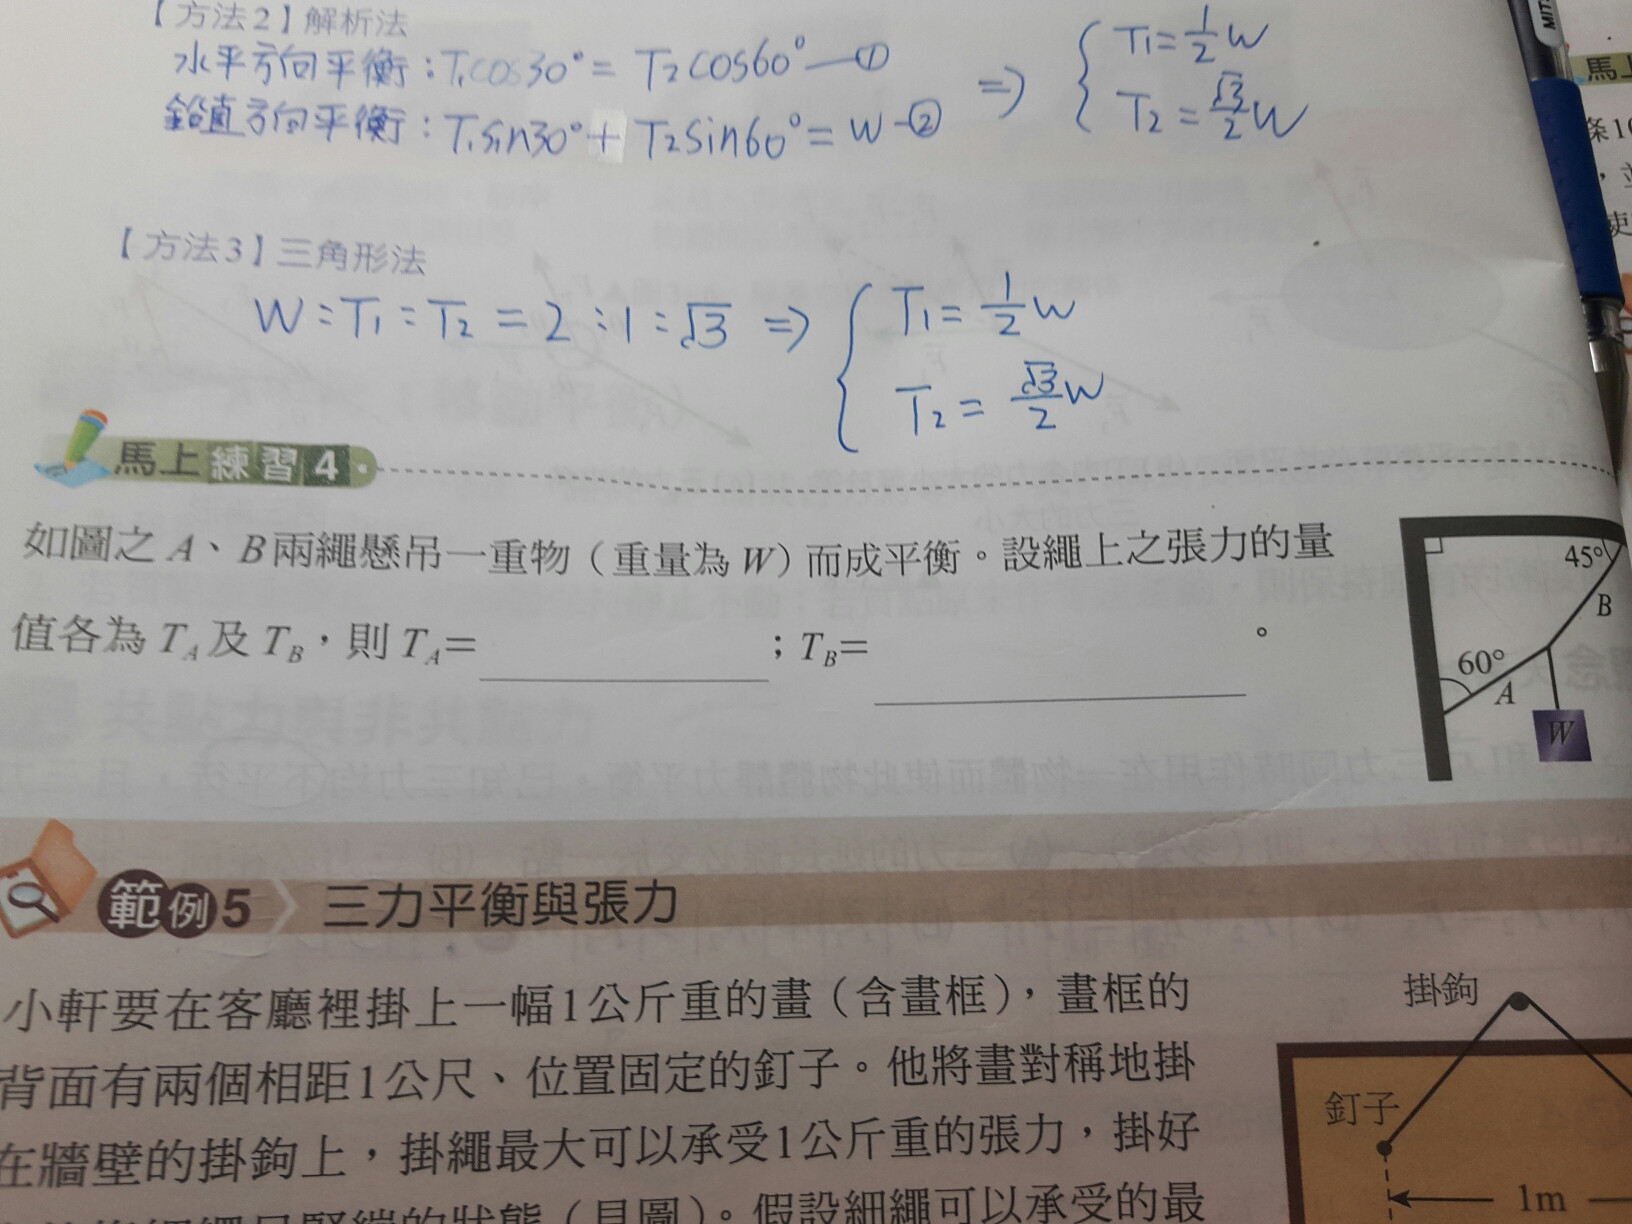 【方法2】解析法
水平方向平衡：T₁cos30°= T₂cos60°—①
鉛直方向平衡：T₁sin30°+ T₂sin60°= W—②
⇒ { T₁=½W
T₂=√3/2 W
【方法3】三角形法
W：T₁：T₂ = 2：1：√3 ⇒ { T₁=½W
T₂=√3/2 W
馬上練習4
如圖之 A、B兩繩懸吊一重物（重量為 W）而成平衡。設繩上之張力的量
值各為 T_A 及 T_B，則 T_A=＿＿＿；T_B=＿＿＿。
45°
B
60°
A
W
範例5 三力平衡與張力
小軒要在客廳裡掛上一幅1公斤重的畫（含畫框），畫框的
背面有兩個相距1公尺、位置固定的釘子。他將畫對稱地掛
在牆壁的掛鉤上，掛繩最大可以承受1公斤重的張力，掛好
的狀態（見圖）。假設細繩可以承受的最
掛鉤
釘子
1m
馬上
條10
使
念
MIT